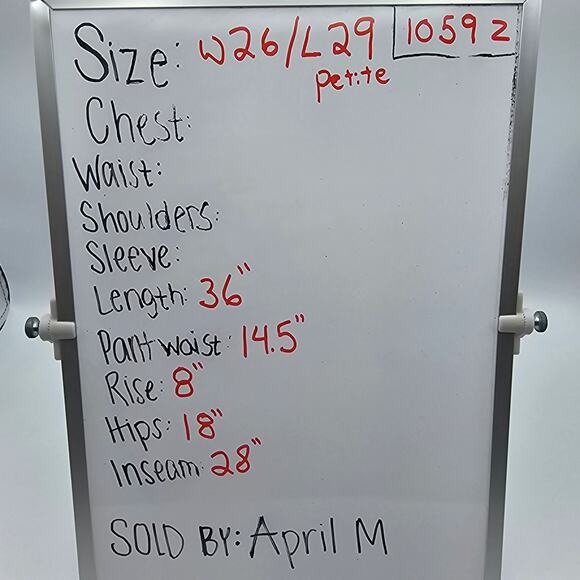 Size: W26/L29 10592
petite
Chest:
Waist:
Shoulders:
Sleeve:
Length: 36"
Pant waist: 14.5"
Rise: 8"
Hips: 18"
Inseam: 28"
SOLD BY: April M